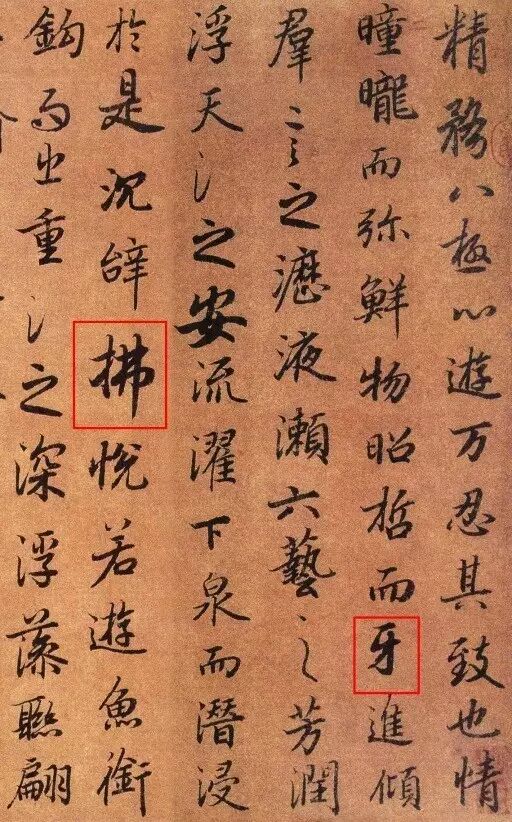 精務八極心遊万忍其致也情
曈曨而弥鮮物昭晢而牙進傾
羣言之瀝液瀨六藝之芳潤
浮天之安流濯下泉而潛浸
於是沉辝拂悅若遊魚銜
鉤而出重之深浮藻聮翩